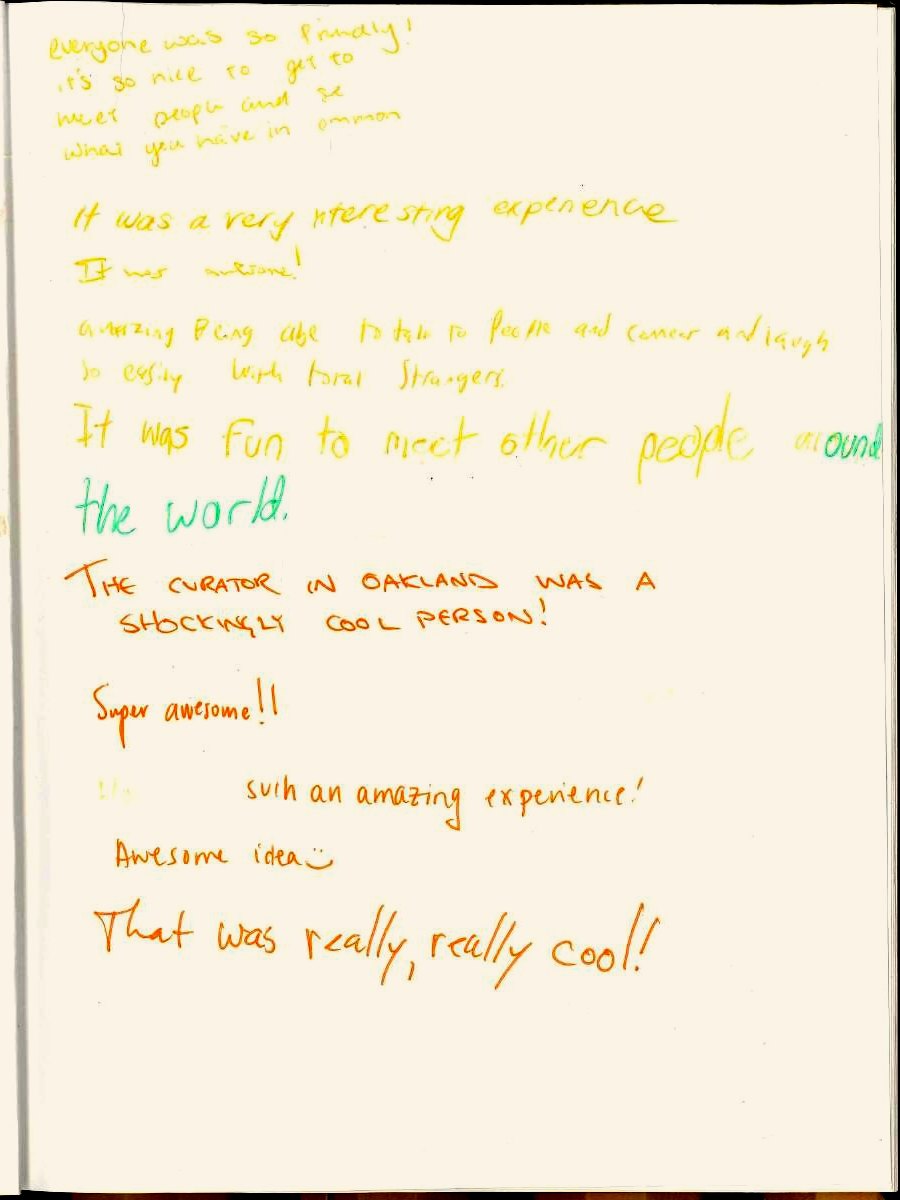 everyone was so friendly!
it's so nice to get to
meet people and se
what you have in ommon
It was a very nteresting experience
It was awesome!
amazing Being able to talk to People and connect and laugh
so easily with total Strangers.
It was fun to meet other people around
the world.
THE CURATOR IN OAKLAND WAS A
SHOCKINGLY COOL PERSON!
Super awesome!!
such an amazing experience!
Awesome idea
That was really, really cool!